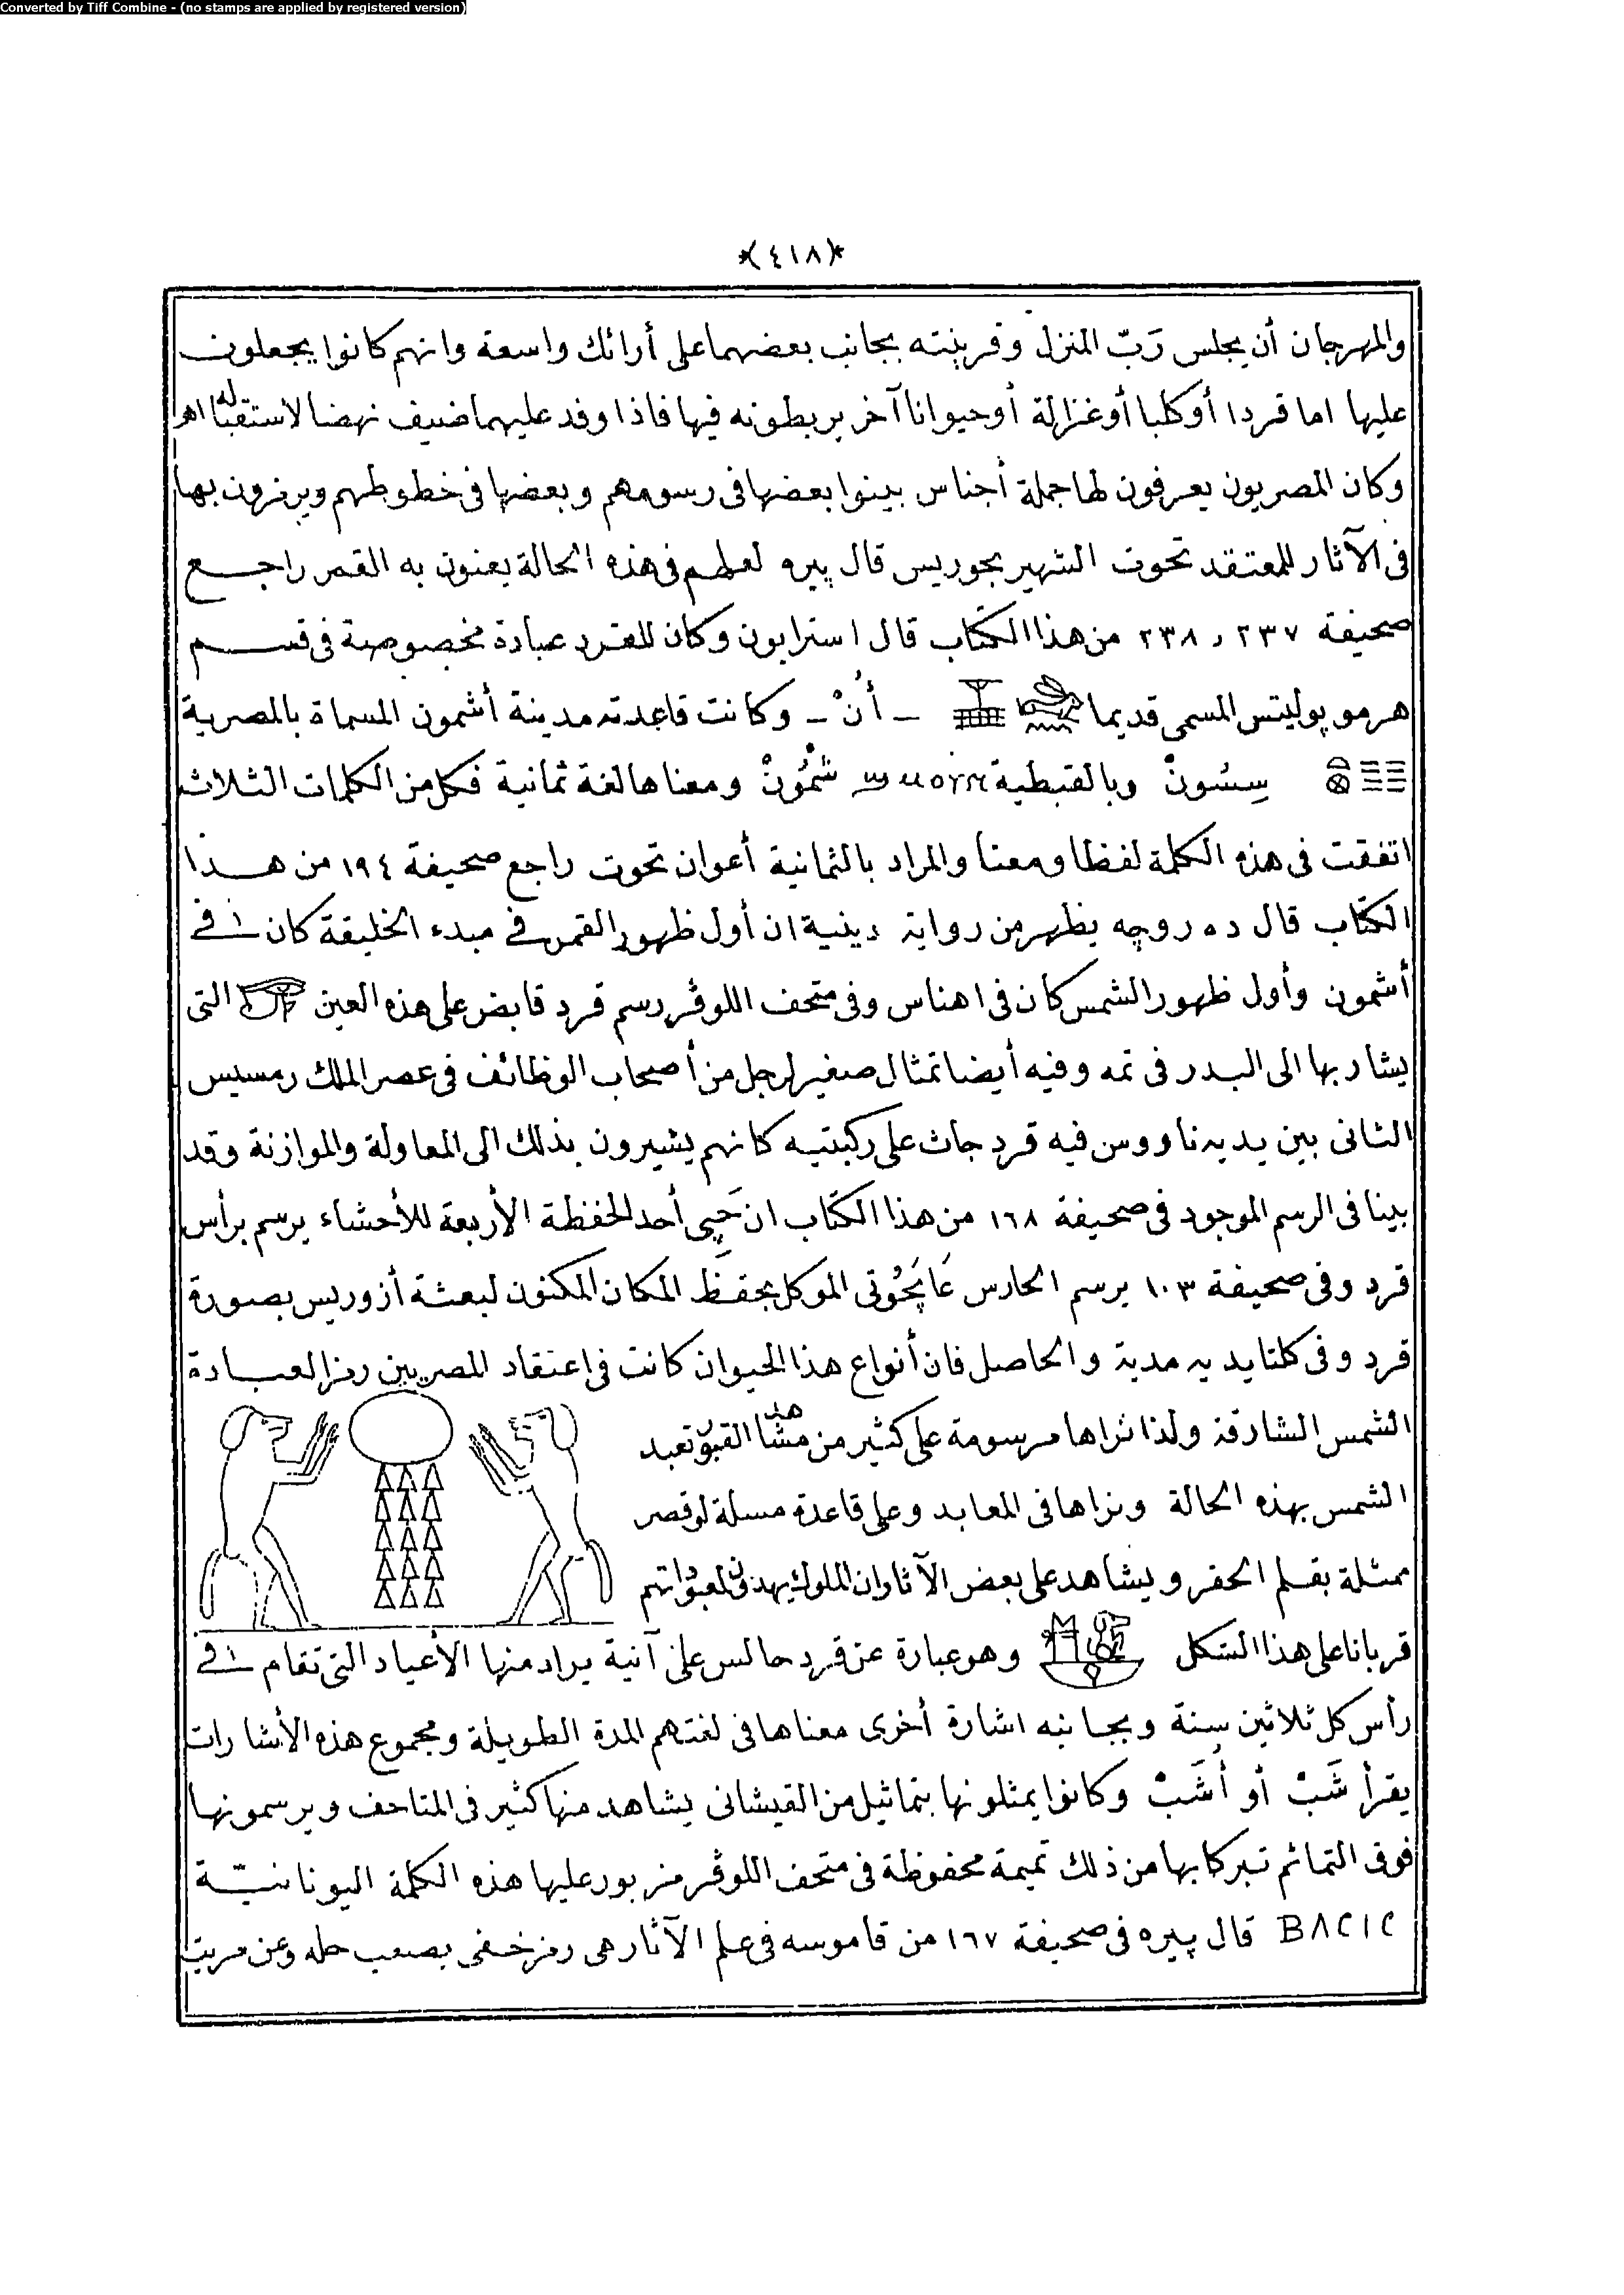 Converted by Tiff Combine - (no stamps are applied by registered version)
*(٤١٨)*
والمهرجان أن يجلس رَبّ المنزل وقرينته بجانب بعضهما على أرائك واسعة وانهم كانوا يجعلون
عليها اما قردا أوكلبا أوغزالة أوحيوانا آخر يربطونه فيها فاذا وفد عليهما ضيف نهضا لاستقباله اه
وكان المصريون يعرفون لها جملة أجناس بينوا بعضها فى رسومهم وبعضها فى خطوطهم ويرمزون بها
فى الآثار للمعتقد تحوت الشهير بجوريس قال پيره لعلهم فى هذه الحالة يعنون به القمر راجع
صحيفة ٢٣٧ , ٢٣٨ من هذا الكتاب قال استرابون وكان للقرد عبادة مخصوصة فى قسم
هرموپوليتس المسمى قديما - أُنْ - وكانت قاعدته مدينة أشمون المسماة بالمصرية
سِسُونْ وبالقبطية ϣⲙⲟⲩⲛ شمُونْ ومعناها لغة ثمانية فكل من الكلمات الثلاث
اتفقت فى هذه الكلمة لفظا ومعنا والمراد بالثمانية أعوان تحوت راجع صحيفة ١٩٤ من هذا
الكتاب قال ده روچه يظهر من رواية دينية ان أول ظهور القمر فى مبدء الخليقة كان فى
أشمون وأول ظهور الشمس كان فى اهناس وفى متحف اللوڤر رسم قرد قابض على هذه العين التى
يشار بها الى البدر فى تمه وفيه أيضا تمثال صغير لرجل من أصحاب الوظائف فى عصر الملك رمسيس
الثانى بين يديه ناووس فيه قرد جاث على ركبتيه كانهم يشيرون بذلك الى المعاولة والموازنة وقد
بينا فى الرسم الموجود فى صحيفة ١٦٨ من هذا الكتاب ان حَپى أحد الحفظة الأربعة للأحشاء يرسم برأس
قرد وفى صحيفة ١٠٣ يرسم الحارس الموكل بحفظ المكان المكنون لبعثة أزوريس بصورة
قرد وفى كلتا يديه مدية والحاصل فان أنواع هذا الحيوان كانت فى اعتقاد المصريين رمزا لعبادة
الشمس الشارقة ولذا نراها مرسومة على كثير من مشاهد القبور تعبد
الشمس بهذه الحالة ونراها فى المعابد وعلى قاعدة مسلة لوقصر
ممثلة بقلم الحفر ويشاهد على بعض الآثار ان الملوك يهدون لمعبوداتهم
قربانا على هذا الشكل وهو عبارة عن قرد جالس على آنية يراد منها الأعياد التى تقام فى
رأس كل ثلاثين سنة وبجانبه اشارة أخرى معناها فى لغتهم المدة الطويلة ومجموع هذه الأشارات
يقرأ شَبْ أو أُشَبْ وكانوا يمثلونها بتماثيل من القيشانى يشاهد منها كثير فى المتاحف ويرسمونها
فوق التمائم تبركا بها من ذلك تميمة محفوظة فى متحف اللوڤر مزبور عليها هذه الكلمة اليونانيّة
ΒΛCIC قال پيره فى صحيفة ١٦٧ من قاموسه فى علم الآثار هى رمز خفى يصعب حله وعن مريت